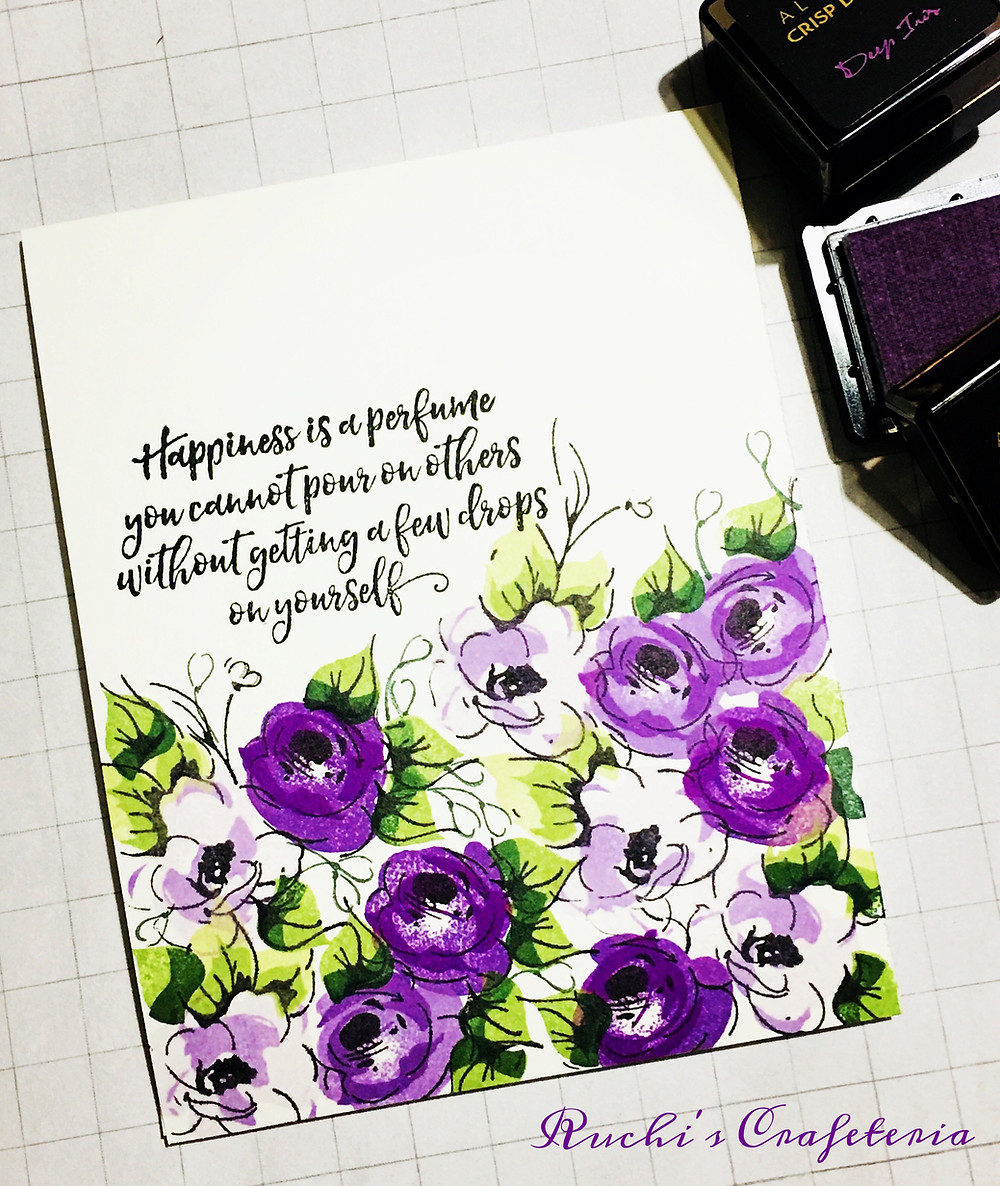 AL
CRISP D
Deep Iris
Happiness is a perfume
you cannot pour on others
without getting a few drops
on yourself
Ruchi's Crafeteria